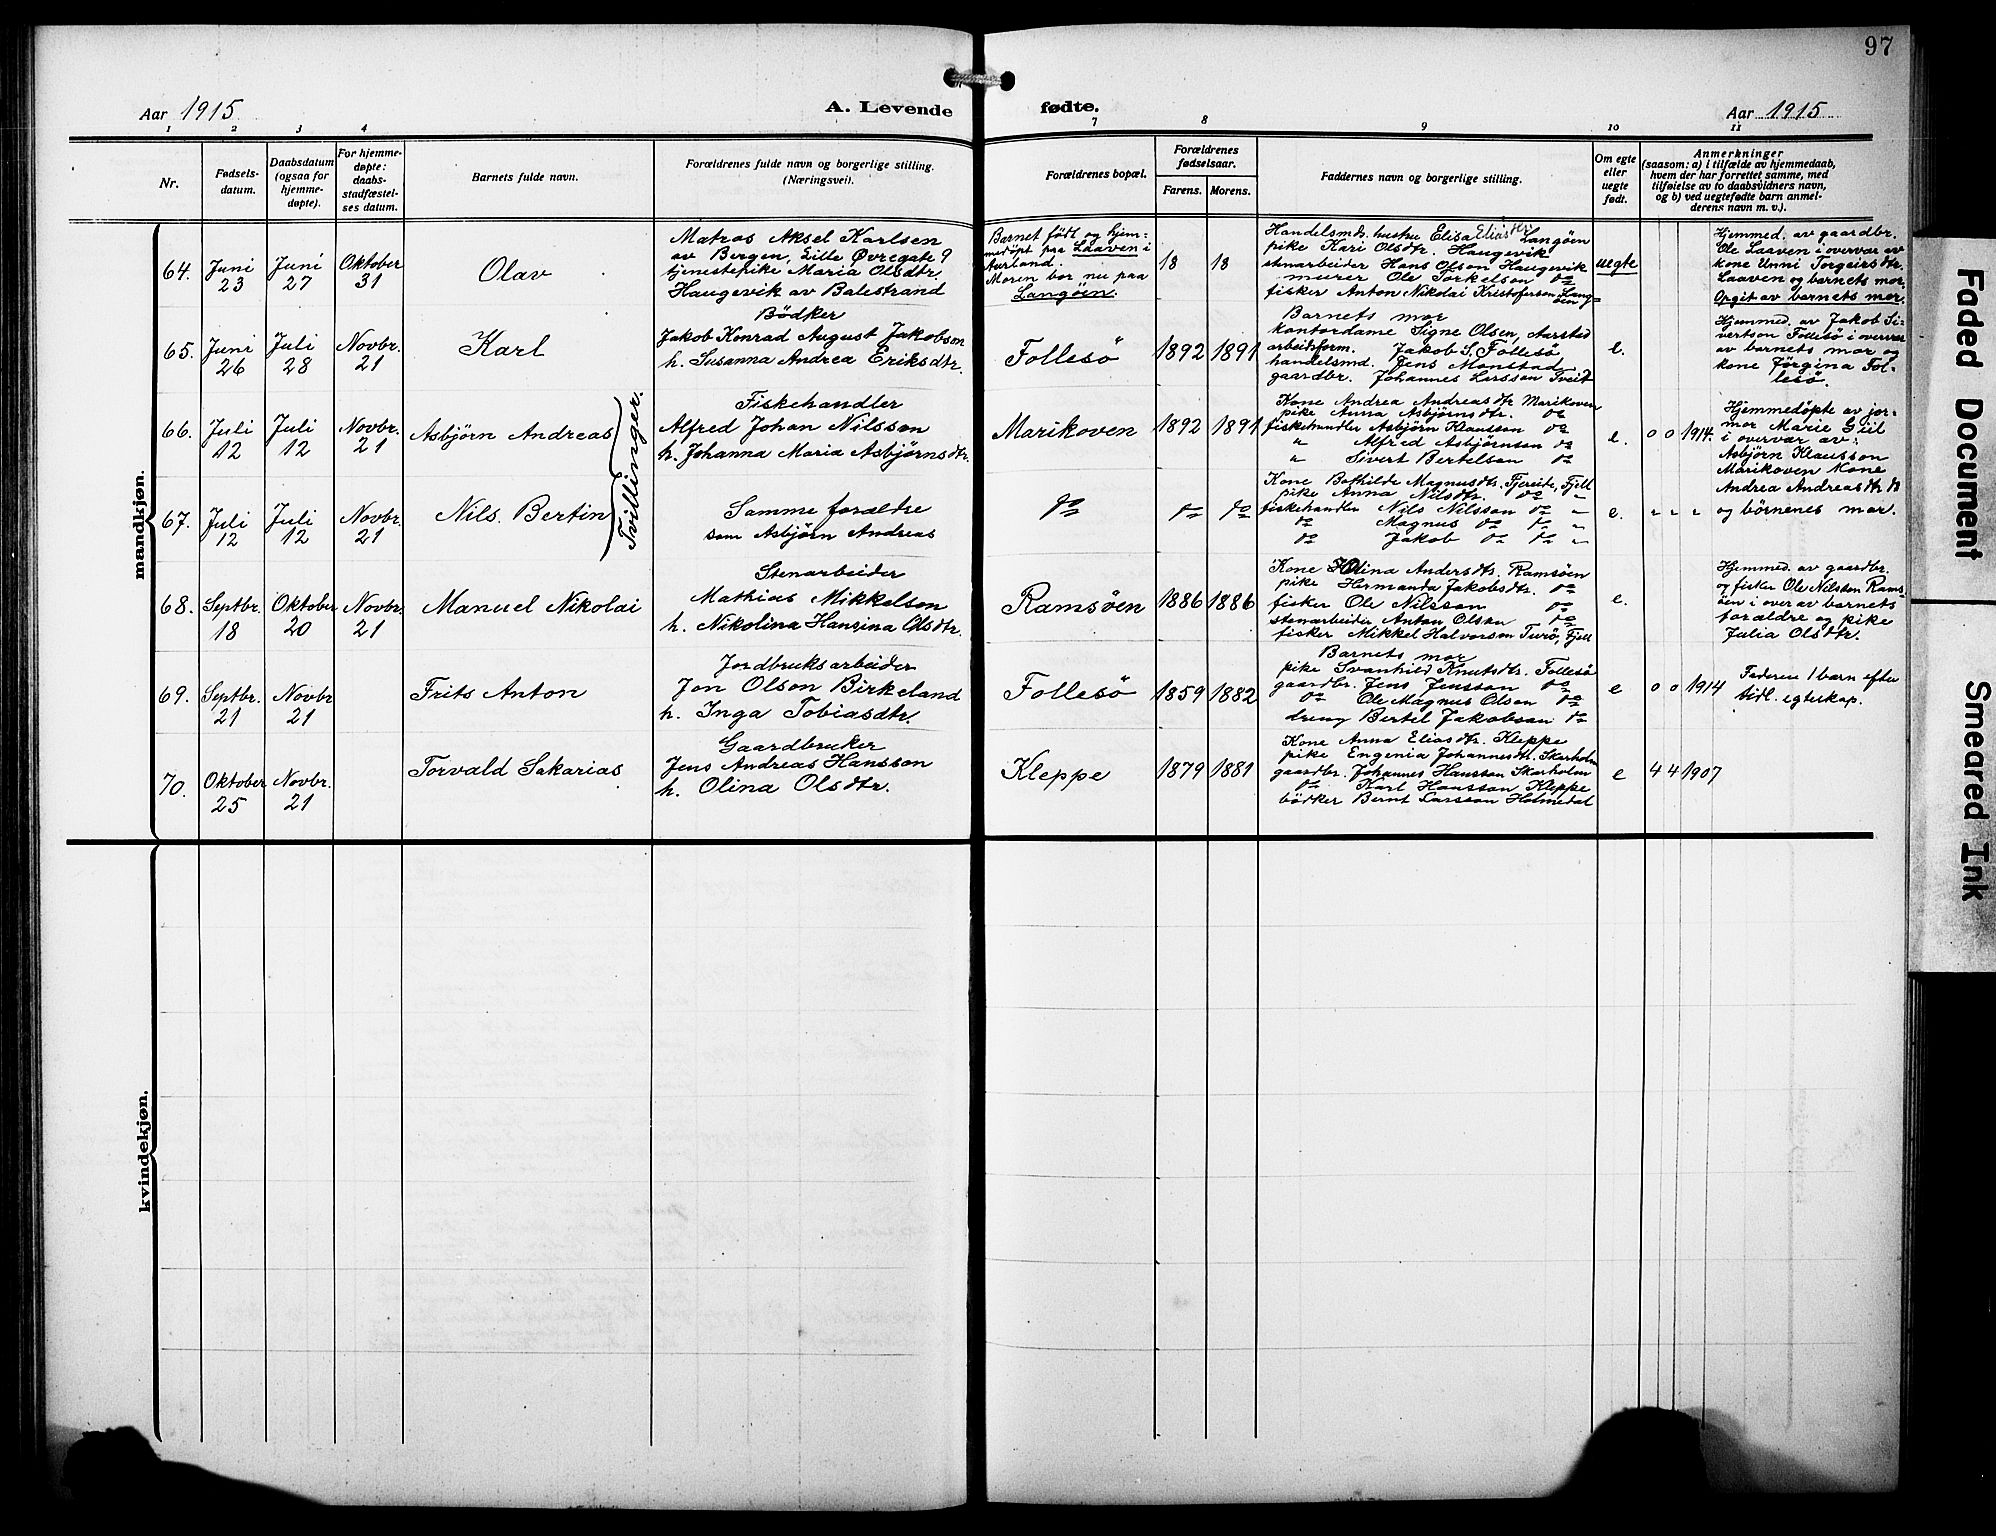 97
Aar 1915
A. Levende
fødte.
Aar 1915
1 2 3 4
7 8 9 10 11
Nr.
Fødsels-
datum.
Daabsdatum
(ogsaa for
hjemme-
døpte).
For hjemme-
døpte:
daabs-
stadfæstel-
ses datum.
Barnets fulde navn.
Forældrenes fulde navn og borgerlige stilling.
(Næringsvei).
Forældrenes bopæl.
Forældrenes
fødselsaar.
Farens. Morens.
Faddernes navn og borgerlige stilling.
Om egte
eller
uegte
født.
Anmerkninger
(saasom: a) i tilfælde av hjemmedaab,
hvem der har forrettet samme, med
tilføielse av to daabsvidners navn,
og b) ved uegtefødte barn anmel-
derens navn m. v.).
mandkjøn.
64.
Juni
23
Juni
27
Oktober
31
Olav
Matros Aksel Karlsen
av Bergen, Lille Øvregate 9
tjenestepike Maria Olsdtr.
Haugevik av Balestrand
Barnet født og hjem-
medöpt paa Laaven i
Aurland.
Moren bor nu paa
Langöen.
18 18
Handelsmds. hustru Elisa Eliasdtr. Langöen
pike Kari Olsdtr. Haugevik
stenarbeider Hans Olson Haugevik
murer Ole Torkelson do
fisker Anton Nikolai Kristoferson Lang-
öen
uegte
Hjemmed. av gaardbr.
Ole Laaven i overvær av
kone Unni Torgeirsdtr.
Laaven og barnets mor.
Opgit av barnets mor.
65.
Juni
26
Juli
28
Novbr.
21
Karl
Bödker
Jakob Konrad August Jakobson
h. Susanna Andrea Eriksdtr.
Follesö
1892 1891
Barnets mor
kontordame Signe Olsen, Aarstad
arbeidsform. Jakob S. Follesö
handelsmd. Jens Monstad
gaardbr. Johannes Larsson Tveit
e.
Hjemmed. av Jakob Si-
vertson Follesö i overvær
av barnets mor og
kone Jørgina Fol-
lesö.
66.
Juli
12
Juli
12
Novbr.
21
Asbjörn Andreas
Tvillinger.
Fiskehandler
Alfred Johan Nilsson
h. Johanna Maria Asbjörnsdtr.
Marikoven
1892 1891
Kone Andrea Andreasdtr Marikoven
pike Anna Asbjörnsdtr. do
fiskehandler Asbjörn Klausson do
" Alfred Asbjörnson do
" Sivert Bertelson do
e.
0 0 1914.
Hjemmedöpte av jor-
mor Marie Giil
i overvær av:
Asbjörn Klausson
Marikoven Kone
Andrea Andreasdtr do
og börnenes mor.
67.
Juli
12
Juli
12
Novbr.
21
Nils Bertin
Samme forældre
som Asbjörn Andreas
do
do do
Kone Bothilde Magnusdtr. Fjereide, Fjell
pike Anna Nilsdtr. do "
fiskehandler Nils Nilsson do "
do Magnus do do "
do Jakob do do "
e.
" " "
68.
Septbr.
18
Oktober
20
Novbr.
21
Manuel Nikolai
Stenarbeider
Mathias Mikkelson
h. Nikolina Hansina Olsdtr.
Ramsöen
1886 1886
Kone Olina Andersdtr. Ramsöen
pike Hermanda Jakobsdtr. do
fisker Ole Nilsson do
stenarbeider Anton Olson do
fisker Mikkel Halvorson Turö, Fjell
e.
Hjemmed. av gaardbr.
og fisker Ole Nilsson Rams-
öen i over av barnets
forældre og pike
Julia Olsdtr.
69.
Septbr.
21
Novbr
21
Frits Anton
Jordbruksarbeider
Jon Olson Birkeland
h. Inga Tobiasdtr.
Follesö
1859 1882
Barnets mor
pike Svanhild Knutsdtr. Follesö
gaardbr. Jens Jensson do
do Ole Magnus Olson do
dreng Bertel Jakobson do
e
0 0 1914
Faderen 1 barn efter
tidl. egteskap.
70.
Oktober
25
Novbr.
21
Torvald Sakarias
Gaardbruker
Jens Andreas Hansson
h. Olina Olsdtr.
Kleppe
1879 1881
Kone Anna Eliasdtr. Kleppe
pike Engenia Johannesdtr. Skarholm
gaardbr. Johannes Hansson Skarholm
do Karl Hansson Kleppe
bödker Bernt Larsson Holmedal
e
4 4 1907
kvindekjøn.
Faded Document
Smeared Ink